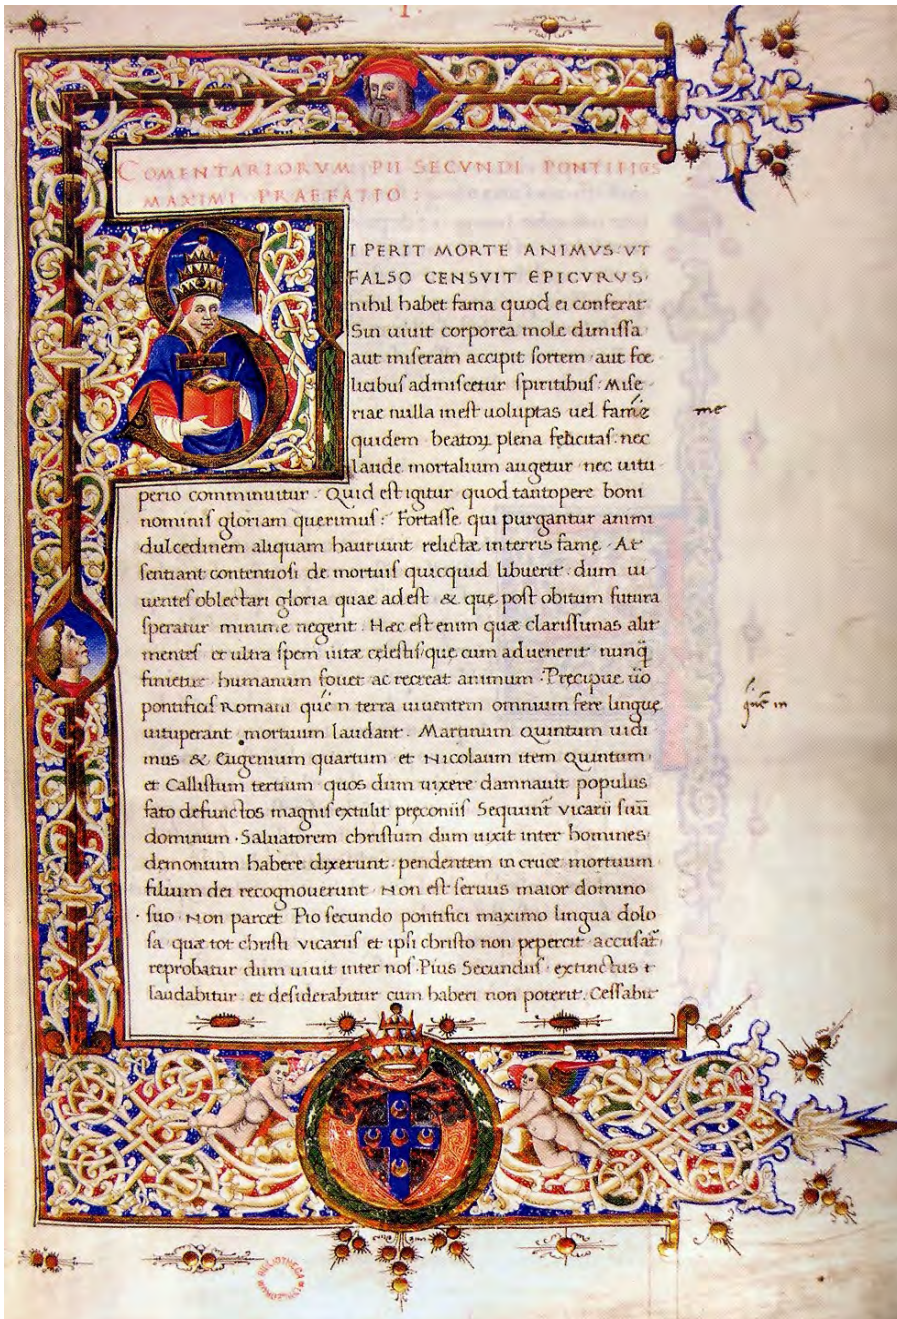 ·I·
COMENTARIORVM PII SECVNDI PONTIFICIS
MAXIMI PRAEFATIO :
SI PERIT MORTE ANIMVS·VT
FALSO CENSVIT EPICVRVS·
nihil habet fama quod ei conferat·
Sin uiuit corporea mole dimissa·
aut miseram accipit sortem· aut foe
licibus admiscetur spiritibus: Mise
riae nulla inest uoluptas uel famę
quidem· beatoꝝ plena felicitas· nec
laude mortalium augetur· nec uitu
perio comminuitur· Quid est igitur quod tantopere boni
nominis gloriam querimus: Fortasse qui purgantur animi
dulcedinem aliquam hauriunt relictæ in terris famę· At
sentiant contentiosi de mortuis quicquid libuerit· dum ui
uentes oblectari gloria quae adest· & quę post obitum futura
speratur minime negent· Hæc est enim quæ clarissimas alit
mentes et ultra spem uitæ cęlestis que cum aduenerit nunq̃
finietur· humanum fouet ac recreat animum· Pręcipue ũo
pontificis Romani quẽ n terra uiuentem omnium fere linguę
uituperant mortuum laudant· Martinum Quintum uidi
mus & Eugenium quartum et Nicolaum item Quintum·
et Callistum tertium quos dum uixere damnauit populus
fato defunctos magnis extulit pręconiis Sequunt̃ vicarii suũ
dominum· Saluatorem christum dum uixit inter homines·
demonium habere dixerunt· pendentem in cruce mortuum
filium dei recognouerunt· Non est seruus maior domino
suo· Non parcet Pio secundo pontifici maximo lingua dolo
sa· quæ tot christi vicariis et ipsi christo non pepercit· accusat̃
reprobatur dum uiuit inter nos· Pius Secundus· extinctus
laudabitur· et desiderabitur cum haberi non poterit. Cessabit
me
in
BIBLIOTHECA